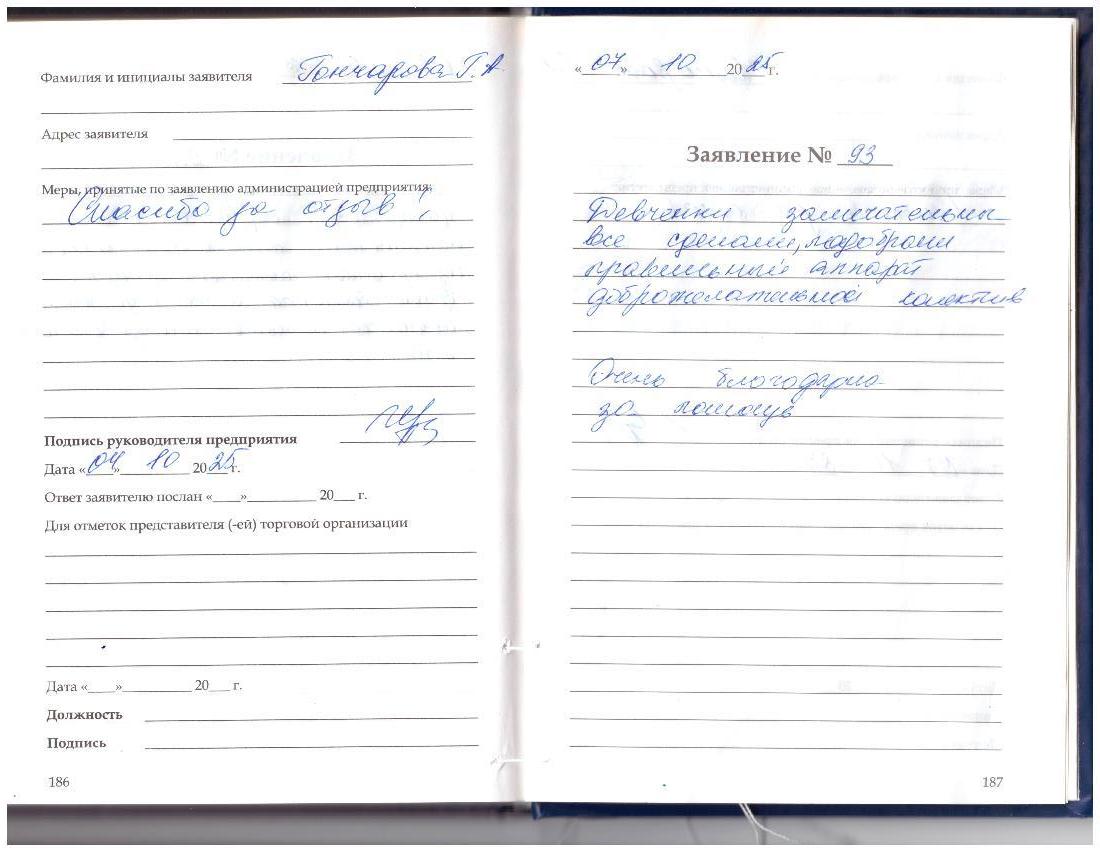 Фамилия и инициалы заявителя Гончарова Г. А.
Адрес заявителя
Меры, принятые по заявлению администрацией предприятия:
Спасибо за отзыв!
Подпись руководителя предприятия
Дата «07» 10 2025 г.
Ответ заявителю послан «___»__________ 20___ г.
Для отметок представителя (-ей) торговой организации
Дата «____»__________ 20___ г.
Должность
Подпись
186
«07» 10 2025 г.
Заявление № 93
Девченки замечательны
все сделали, подобрали
правильный аппарат
доброжелательной колектив
Очень благодарна
за помощь
187